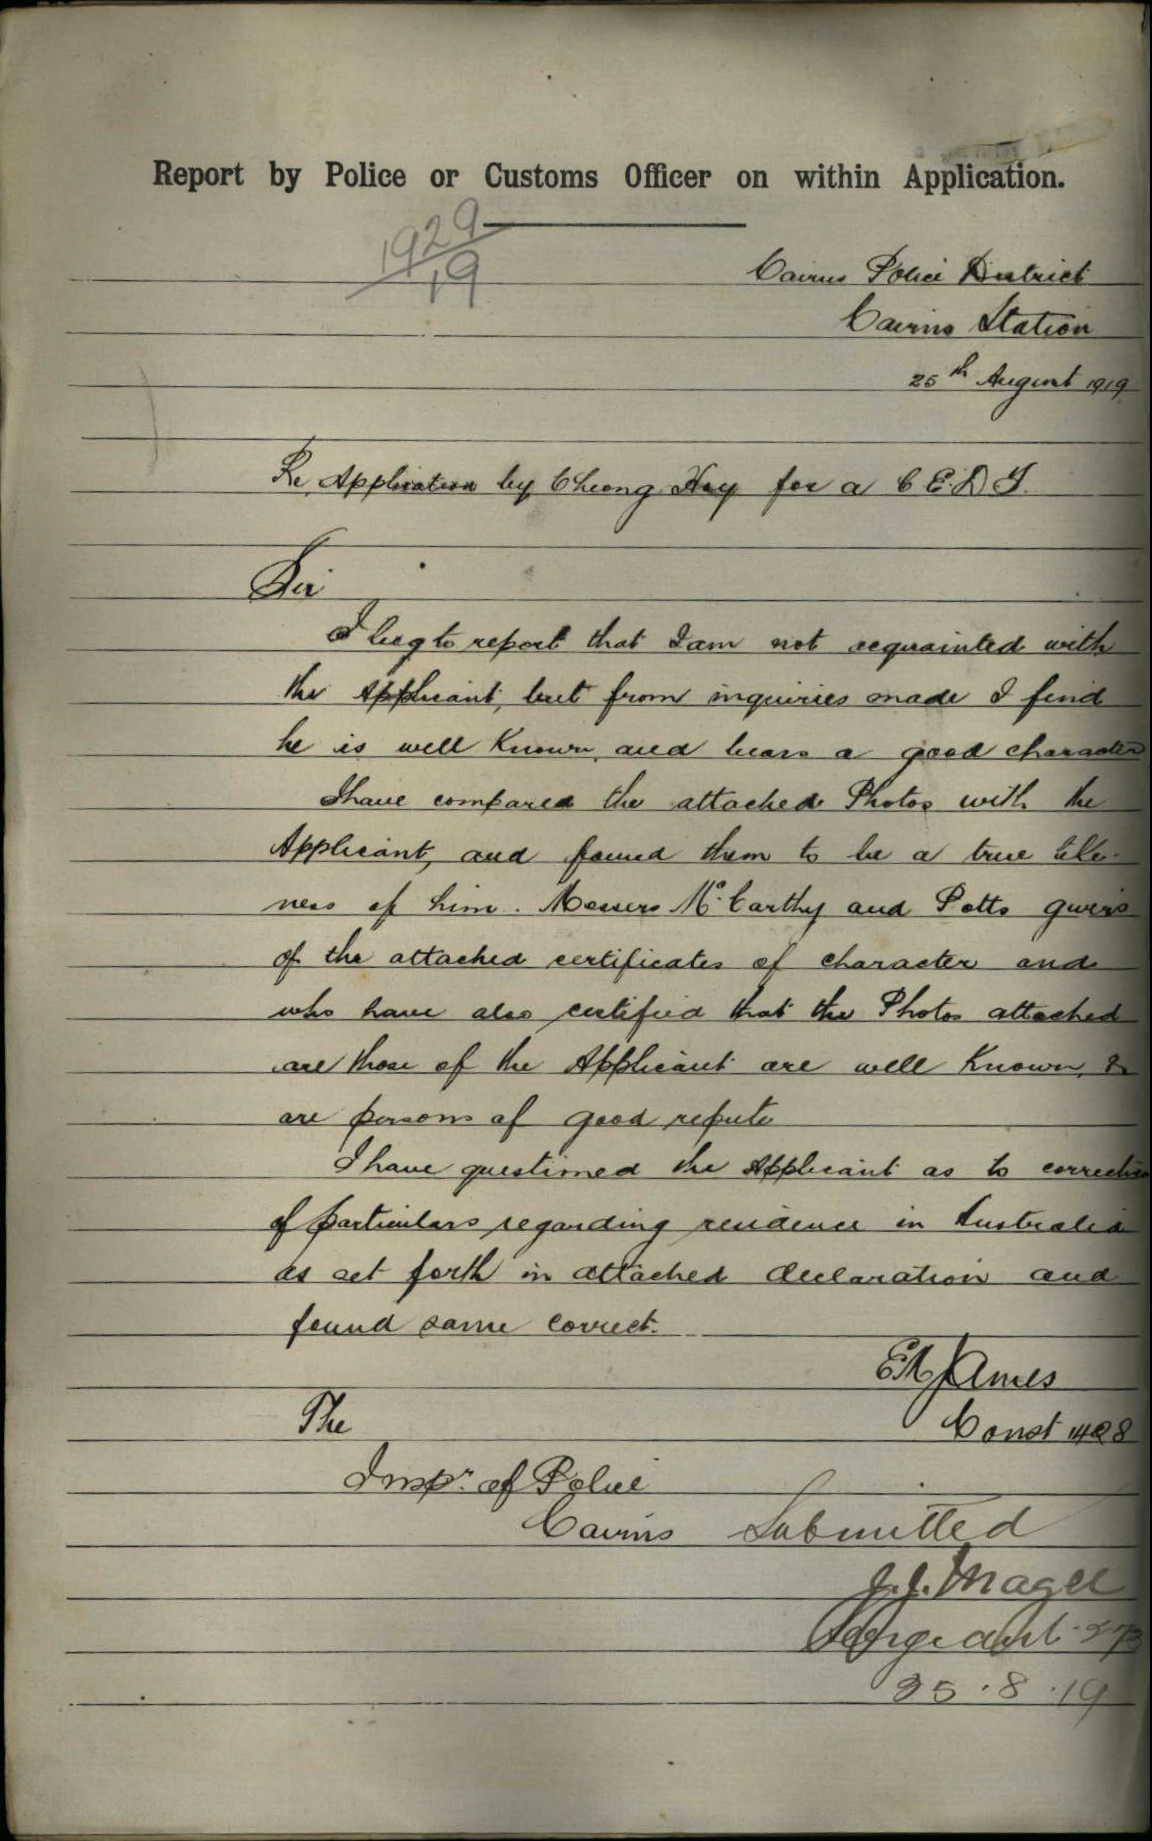 Report by Police or Customs Officer on within Application.
1929
19
Cairns Police District
Cairns Station
25th August 1919
Re Application by Cheong Hoy for a C E.D T.
Sir
I beg to report that I am not acquainted with
the Applicant, but from inquiries made I find
he is well known, and bears a good character
I have compared the attached Photos with the
Applicant, and found them to be a true like-
ness of him. Messers McCarthy and Potts givers
of the attached certificates of character and
who have also certified that the Photos attached
are those of the Applicant are well known, &
are persons of good repute
I have questioned the Applicant as to correctness
of particulars regarding residence in Australia
as set forth in attached declaration and
found same correct.
James
Const
The
Inspr. of Police
Cairns
Submitted
J.J. Magee
Sergeant
25.8.19